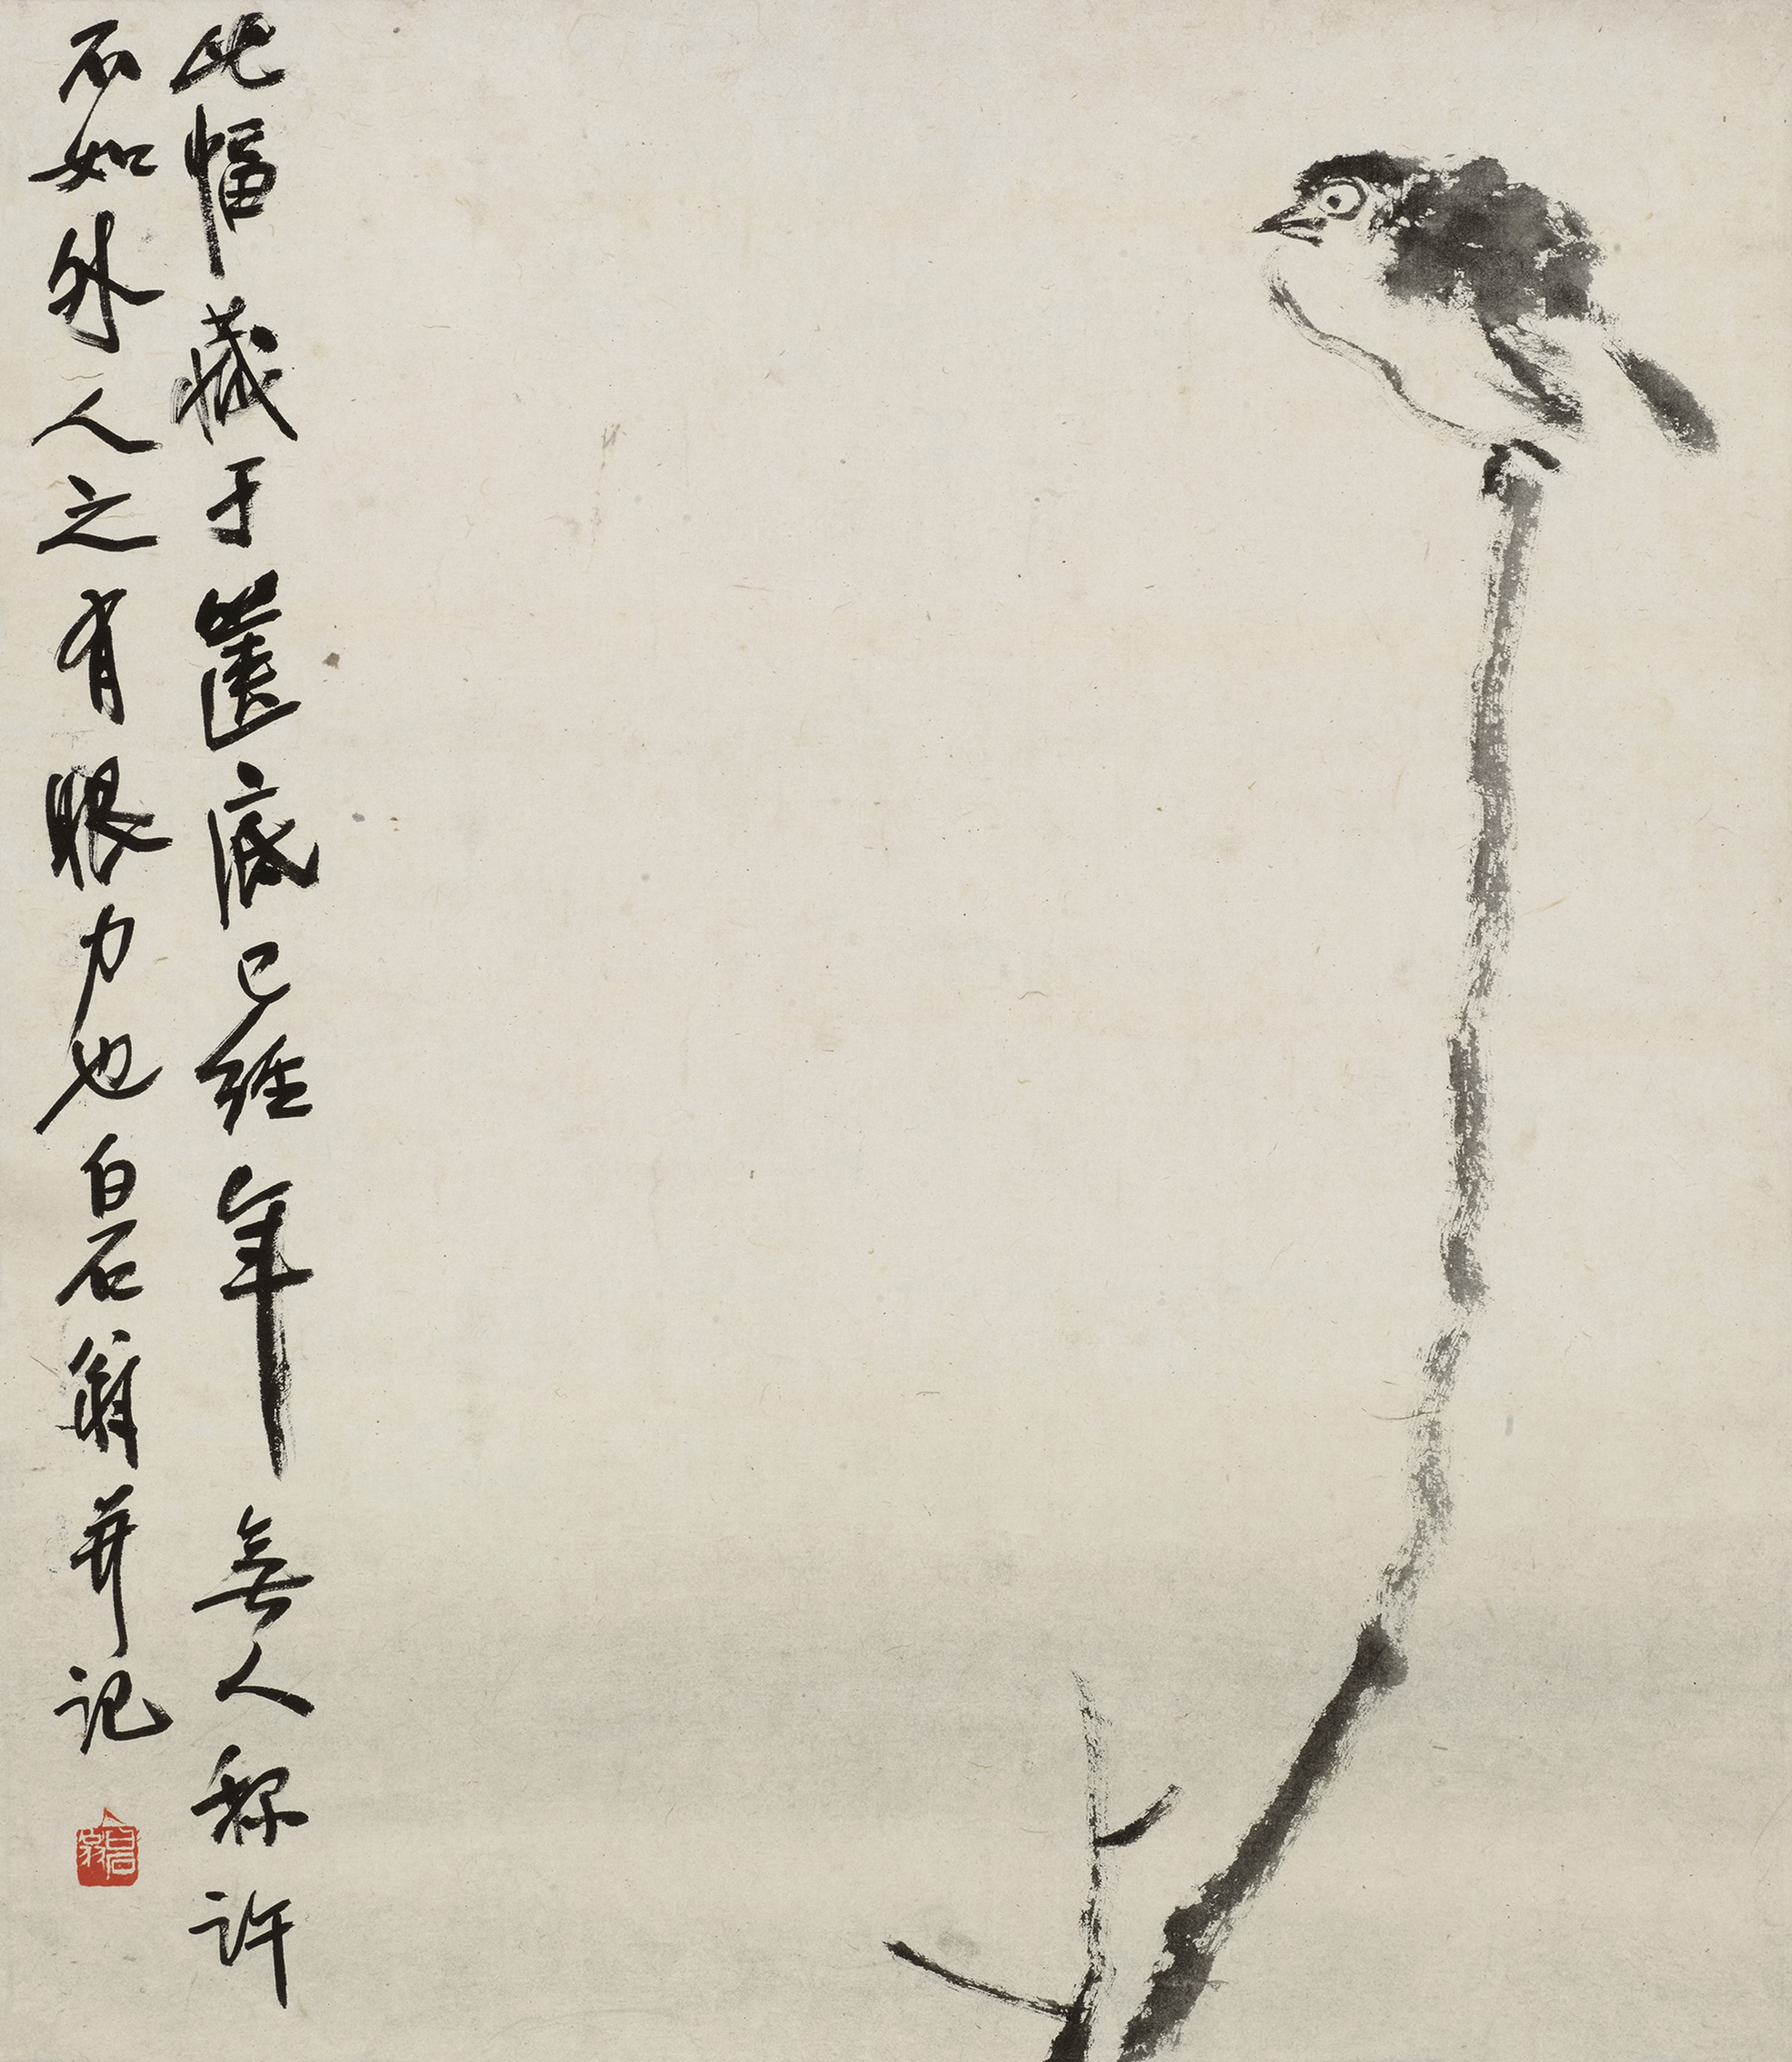 此幅藏于箧底已经年無人称许
不如外人之有眼力也白石翁并记
白石翁